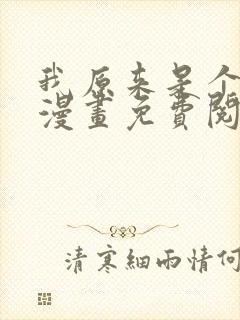 我原来是个
漫畫免費閱
清寒細雨情何